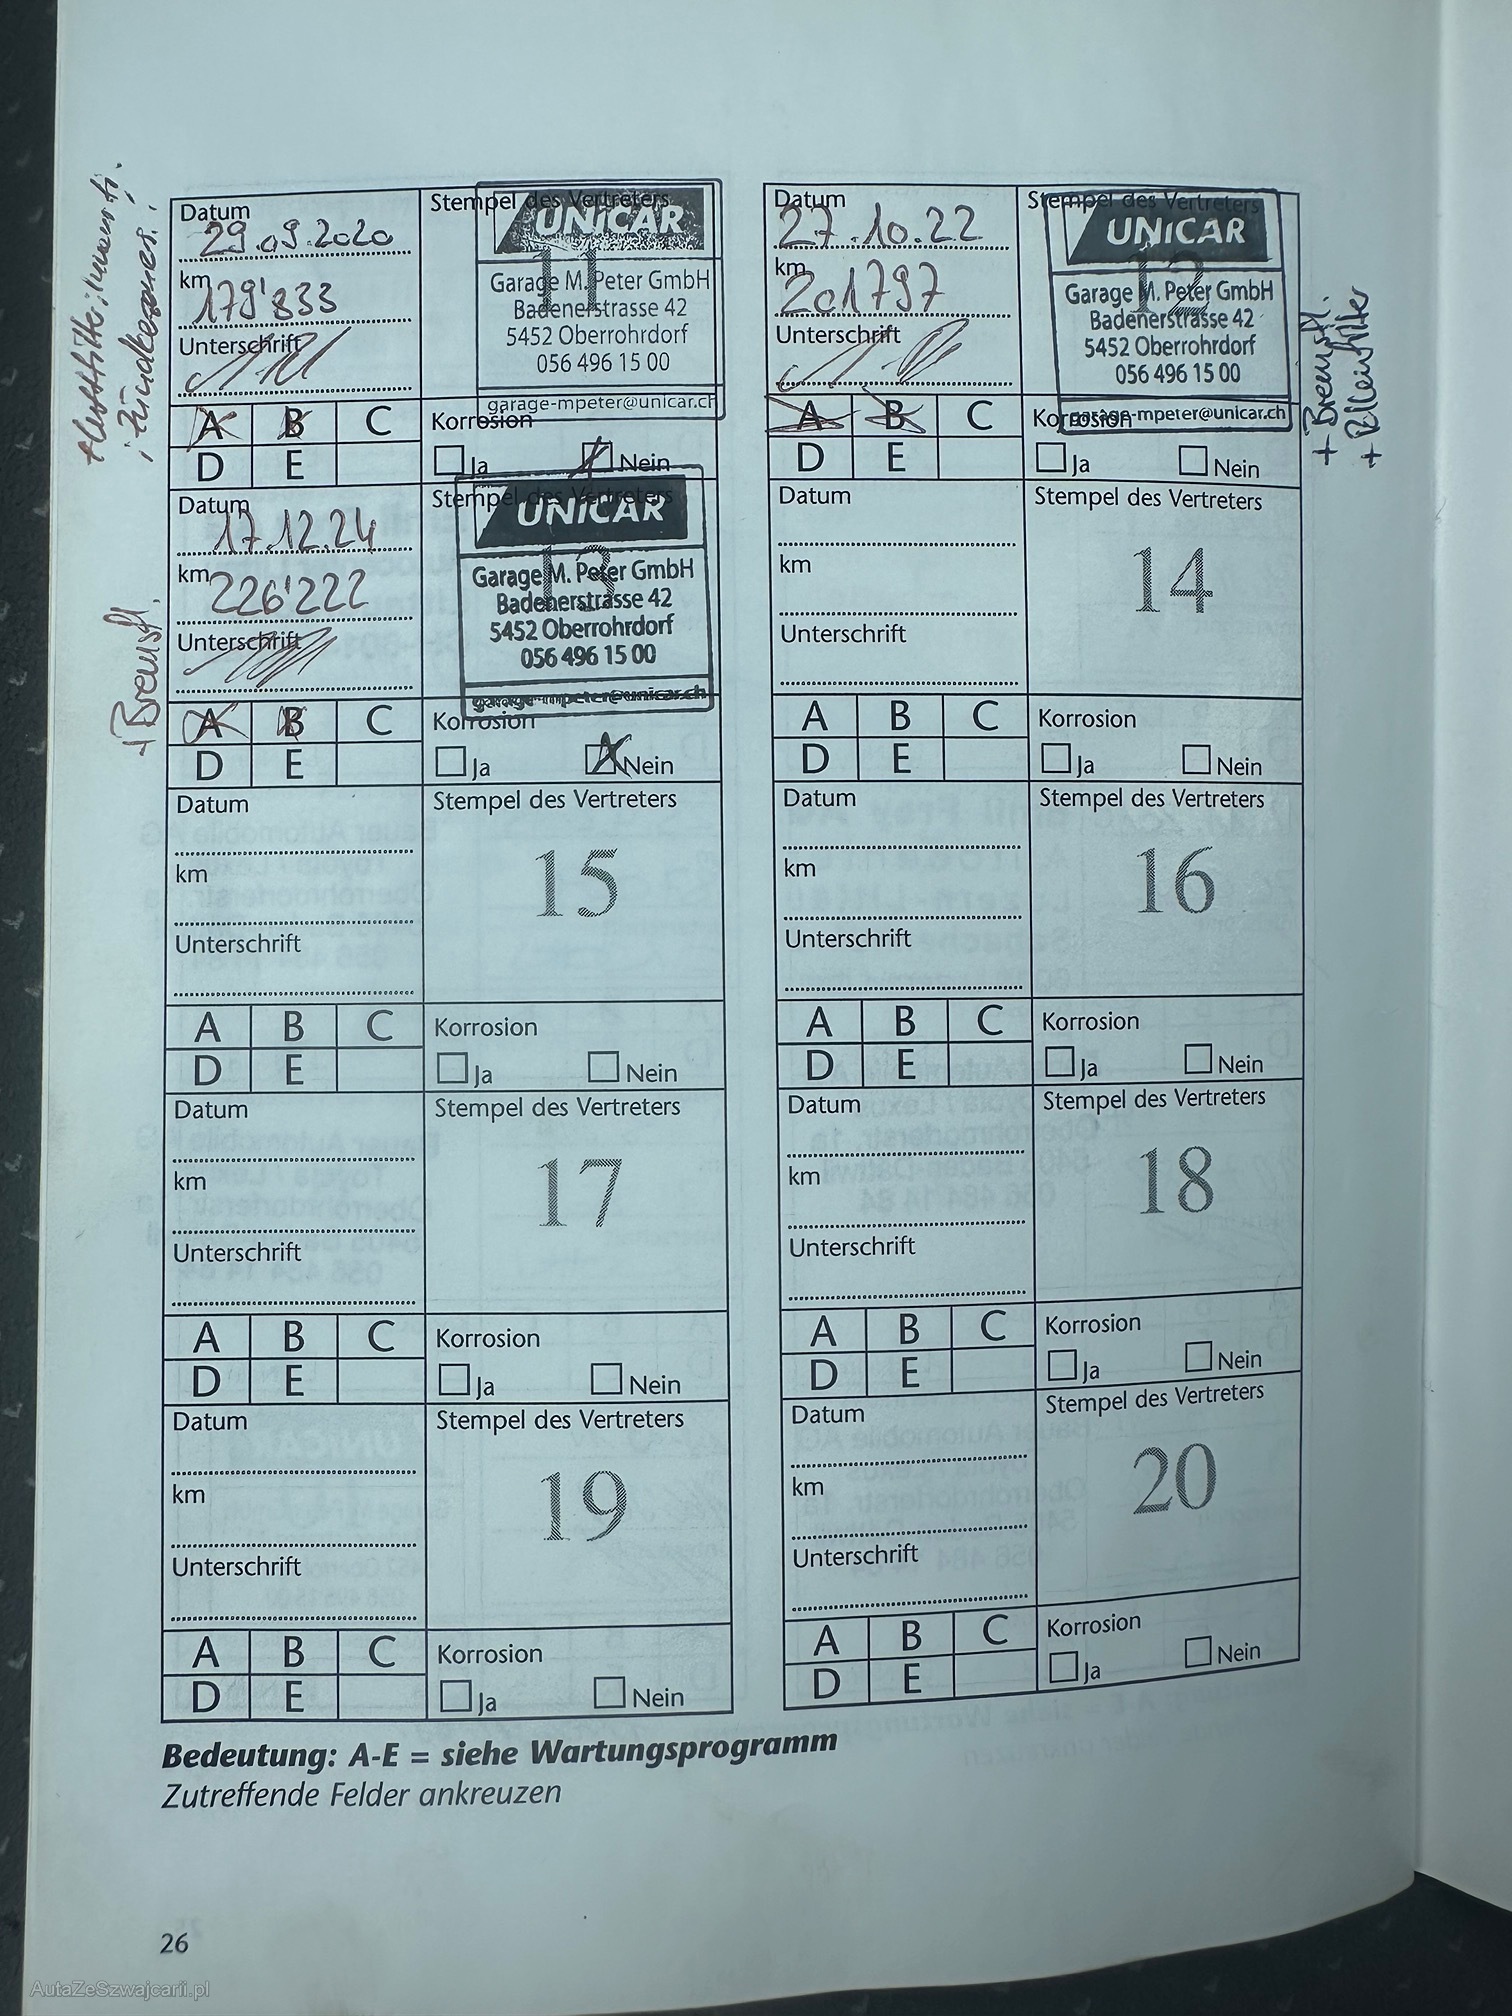 Datum
29.09.2020
km
179'833
Unterschrift
Stempel des Vertreters
UNiCAR
11
Garage M. Peter GmbH
Badenerstrasse 42
5452 Oberrohrdorf
056 496 15 00
garage-mpeter@unicar.ch
A B C
D E
Korrosion
Ja Nein
Datum
27.10.22
km
201797
Unterschrift
Stempel des Vertreters
UNiCAR
12
Garage M. Peter GmbH
Badenerstrasse 42
5452 Oberrohrdorf
056 496 15 00
garage-mpeter@unicar.ch
A B C
D E
Korrosion
Ja Nein
+ Bremsfl.
Datum
17.12.24
km
226'222
Unterschrift
Stempel des Vertreters
UNiCAR
13
Garage M. Peter GmbH
Badenerstrasse 42
5452 Oberrohrdorf
056 496 15 00
garage-mpeter@unicar.ch
A B C
D E
Korrosion
Ja Nein
+ Bremsfl.
Datum
km
Unterschrift
Stempel des Vertreters
14
A B C
D E
Korrosion
Ja Nein
Datum
km
Unterschrift
Stempel des Vertreters
15
A B C
D E
Korrosion
Ja Nein
Datum
km
Unterschrift
Stempel des Vertreters
16
A B C
D E
Korrosion
Ja Nein
Datum
km
Unterschrift
Stempel des Vertreters
17
A B C
D E
Korrosion
Ja Nein
Datum
km
Unterschrift
Stempel des Vertreters
18
A B C
D E
Korrosion
Ja Nein
Datum
km
Unterschrift
Stempel des Vertreters
19
A B C
D E
Korrosion
Ja Nein
Datum
km
Unterschrift
Stempel des Vertreters
20
A B C
D E
Korrosion
Ja Nein
Bedeutung: A-E = siehe Wartungsprogramm
Zutreffende Felder ankreuzen
26
AutaZeSzwajcarii.pl